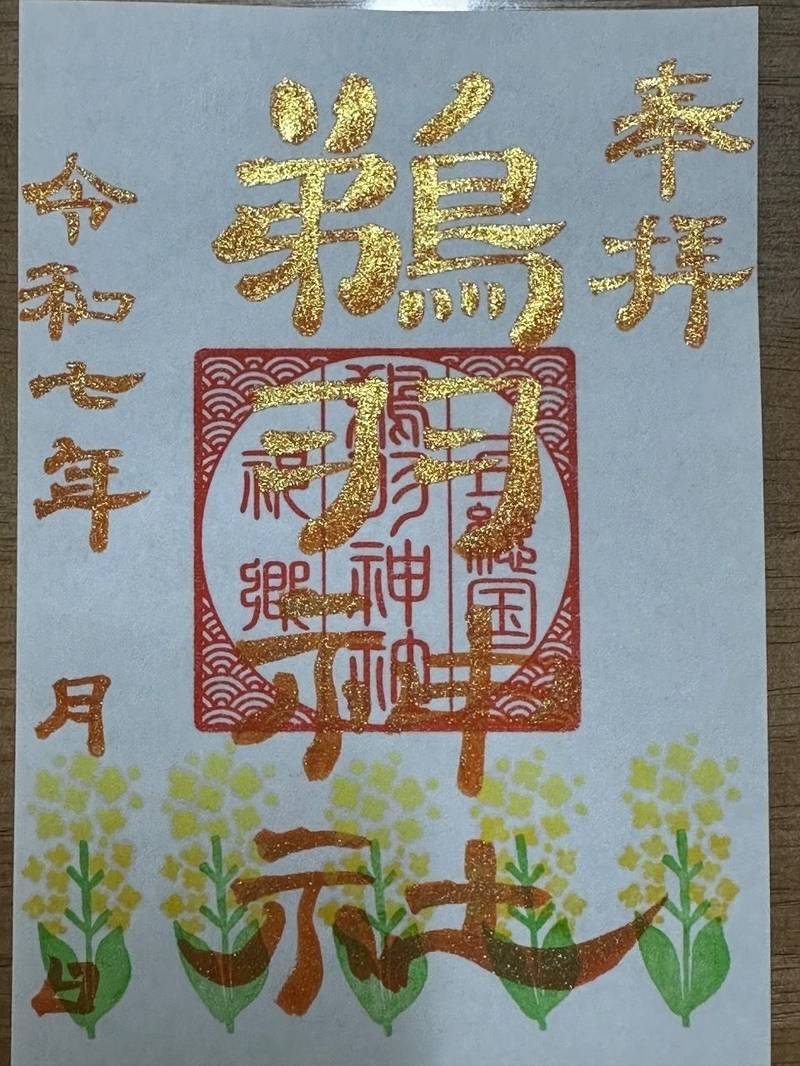 奉拝
鵜羽神社
令和七年 月 日
上総国
鵜羽神社
祝郷